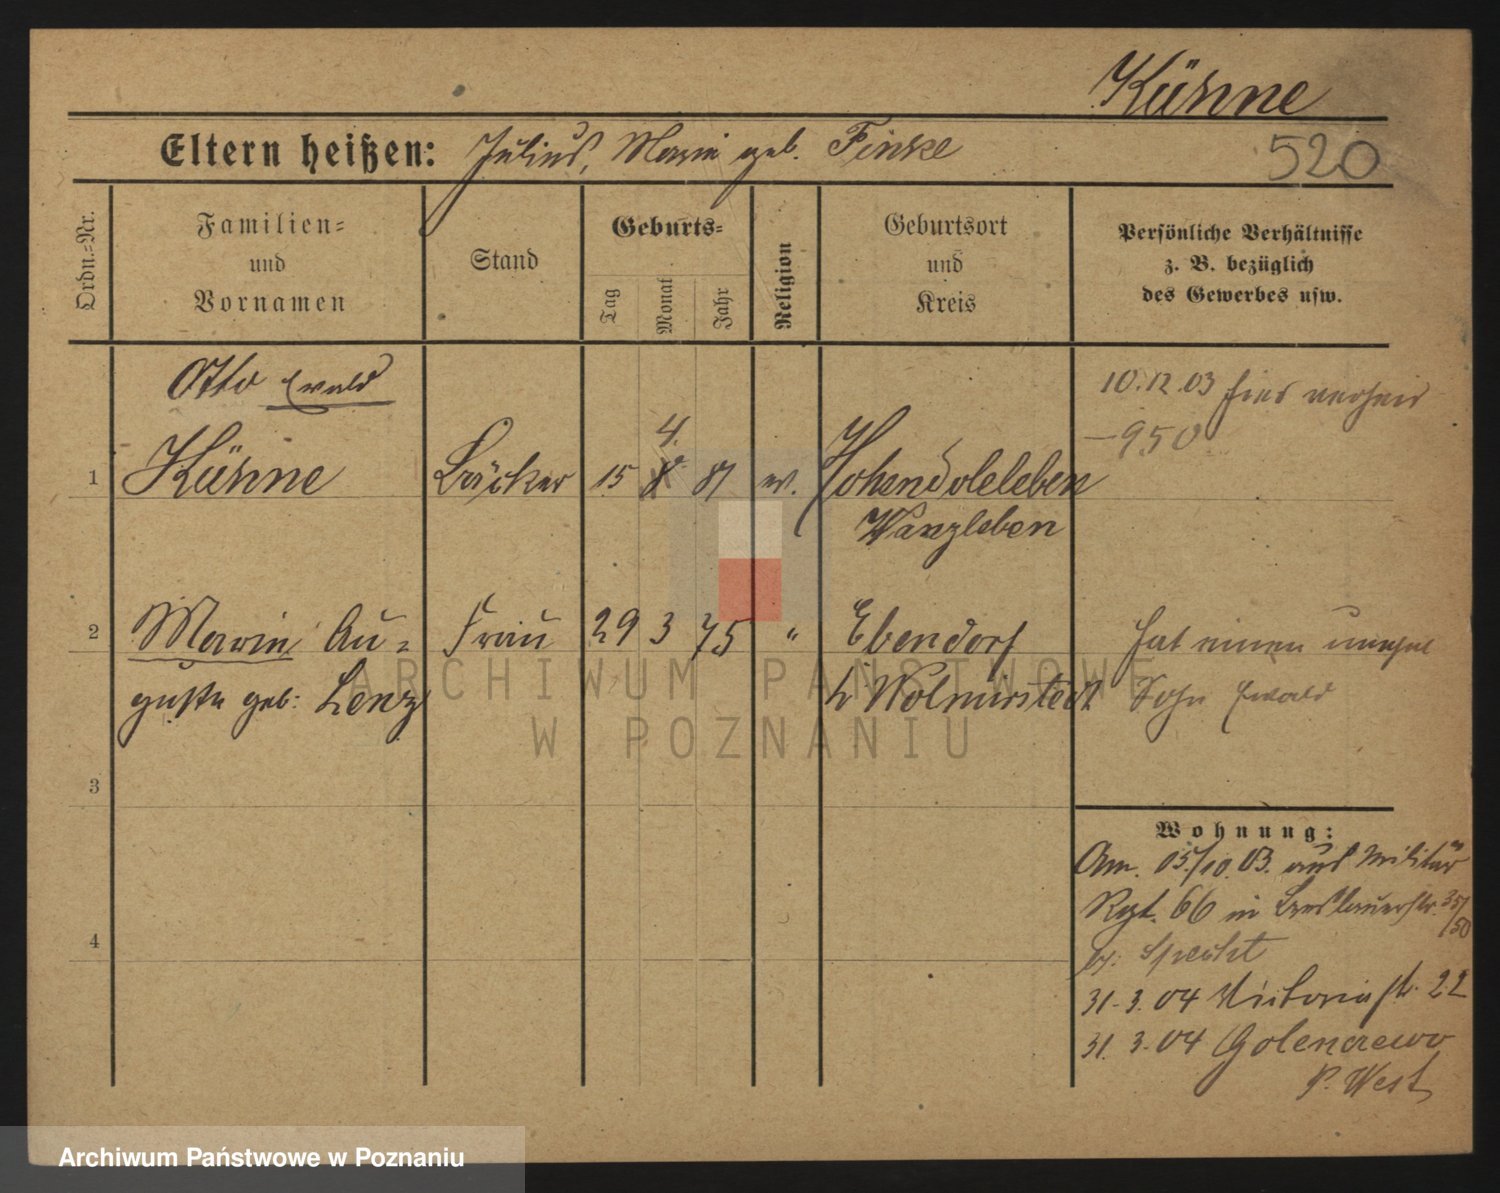 Kühne
520
Eltern heißen: Julius, Marie geb. Finke
Ordn.=Nr.
Familien=
und
Vornamen
Stand
Geburts=
Tag
Monat
Jahr
Religion
Geburtsort
und
Kreis
Persönliche Verhältnisse
z. B. bezüglich
des Gewerbes usw.
Otto Ewald
10.12.03 hier verheir
950
4.
1 Kühne Bäcker 15 81 ev. Hohendoleleben
Wanzleben
2 Marie Au= Frau 29 3 75 " Ebendorf
hat einen unehel
guste geb: Lenz Wolmirstedt
Sohn Ewald
3
4
Wohnung:
Am. 05/10.03. aus Militär
Rgt. 66 in Breslauerstr. 35/
/50
b: Specht
31.3.04 Victoriastr. 22
31.3.04 Golenczewo
P. West
ARCHIWUM PAŃSTWOWE
W POZNANIU
Archiwum Państwowe w Poznaniu